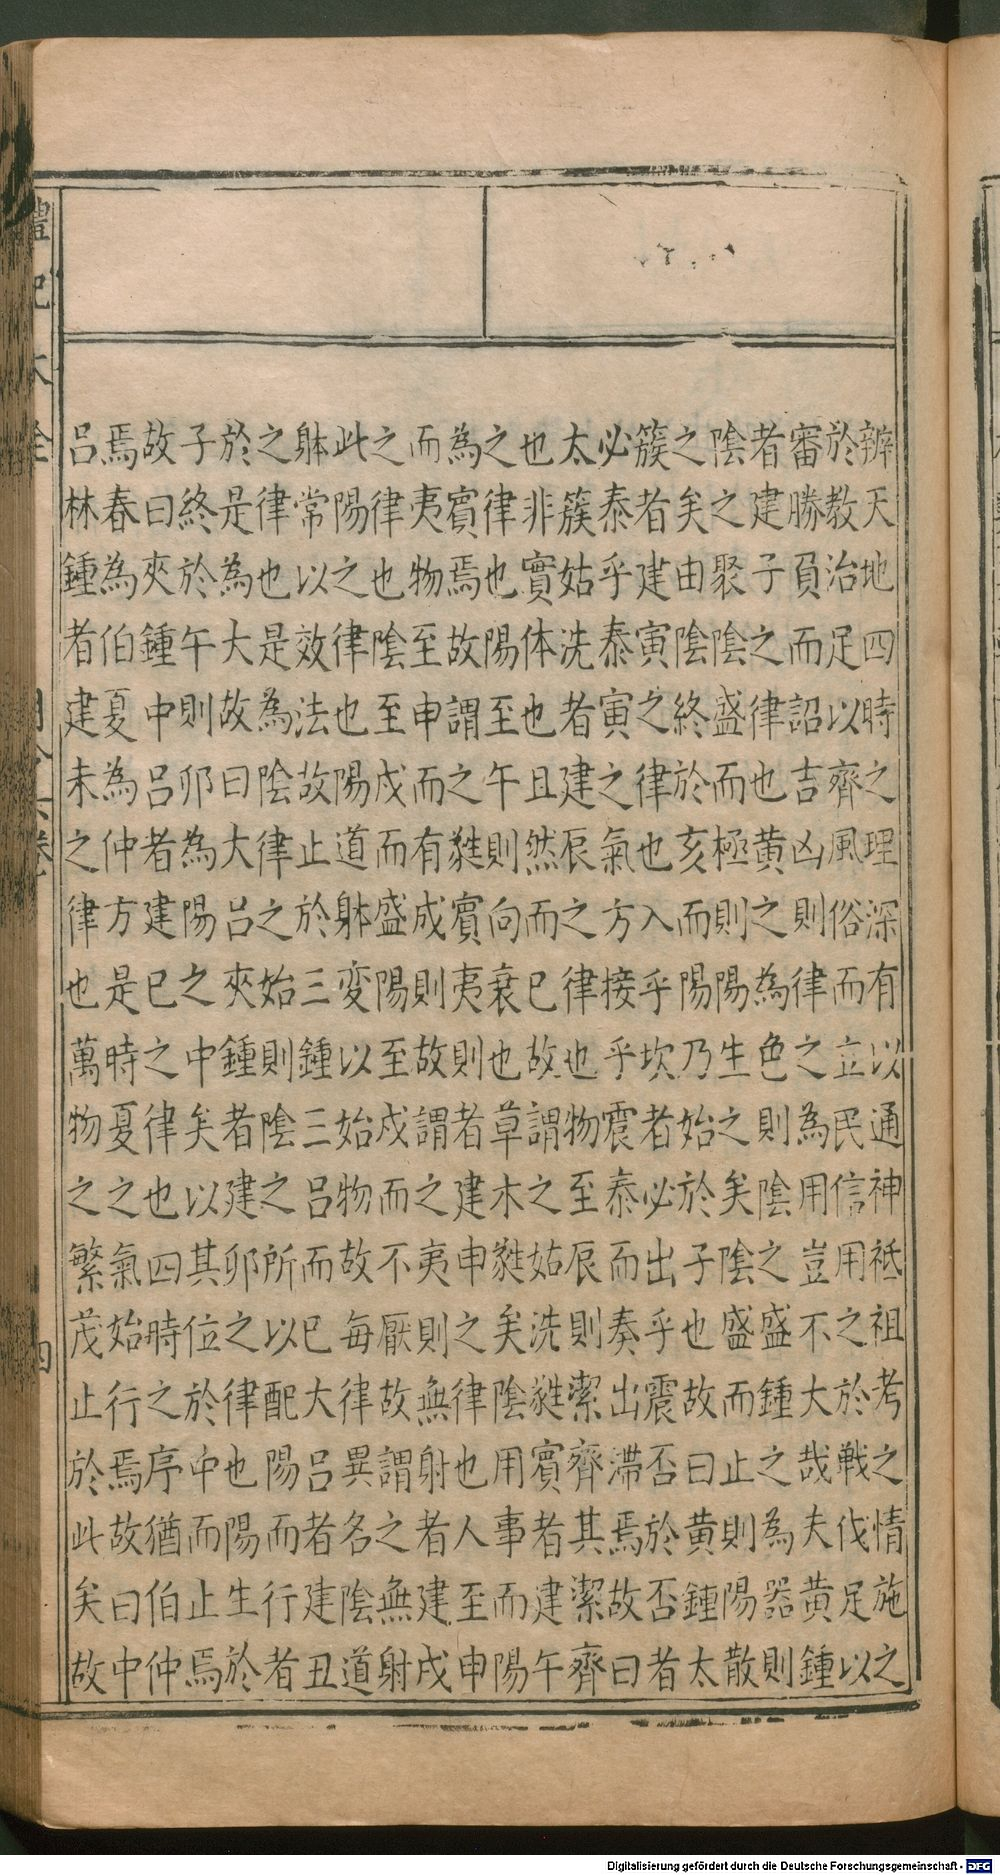 辨天地四時之理深有以通神祗祖考之情施之
於教治足以齊風俗而立民信用之於戦伐足以
審勝負而詔吉凶則律之為用豈不大哉夫黃鍾
者建子之律也黃之為色則陰之盛鍾之為器則
陰之聚陰盛而極則陽生之矣陰盛而止則陽散
之矣由陰終於亥而陽乃始於子也故曰黃鍾太
簇者建寅之律也入乎坎者必出乎震否於否者
必泰乎泰寅之氣方接乎震泰而奏出滯焉故曰
太簇姑洗者建辰之律也物至辰則潔齊其潔齊
也非實体也且然而巳故謂之姑洗蕤賓者建午
之律也陽至午則向衰也草木蕤矣陰用事而陽
為賓焉故謂之蕤賓夷則者建申之律也人至申
而夷物至申而有成則故謂之夷則無射者建戍
之律也陰至戍而盛陽至戍而不厭故謂之無射
此陽之律也陽道躰变以始物故每律異名陰道
躰常以效法故止於三鍾三呂而巳大呂者建丑
之律也是為陰律之始則陰之所以配陽而行者
於是為大故曰大呂夾鍾者建卯之律也陽生於
子終於午則卯為陽之中矣以其位於中而止焉
故曰夾鍾中呂者建巳之律也四時之序猶伯仲
焉春為伯夏為仲方是時夏之氣始行焉故曰中
呂林鍾者建未之律也萬物之繁茂止於此矣故